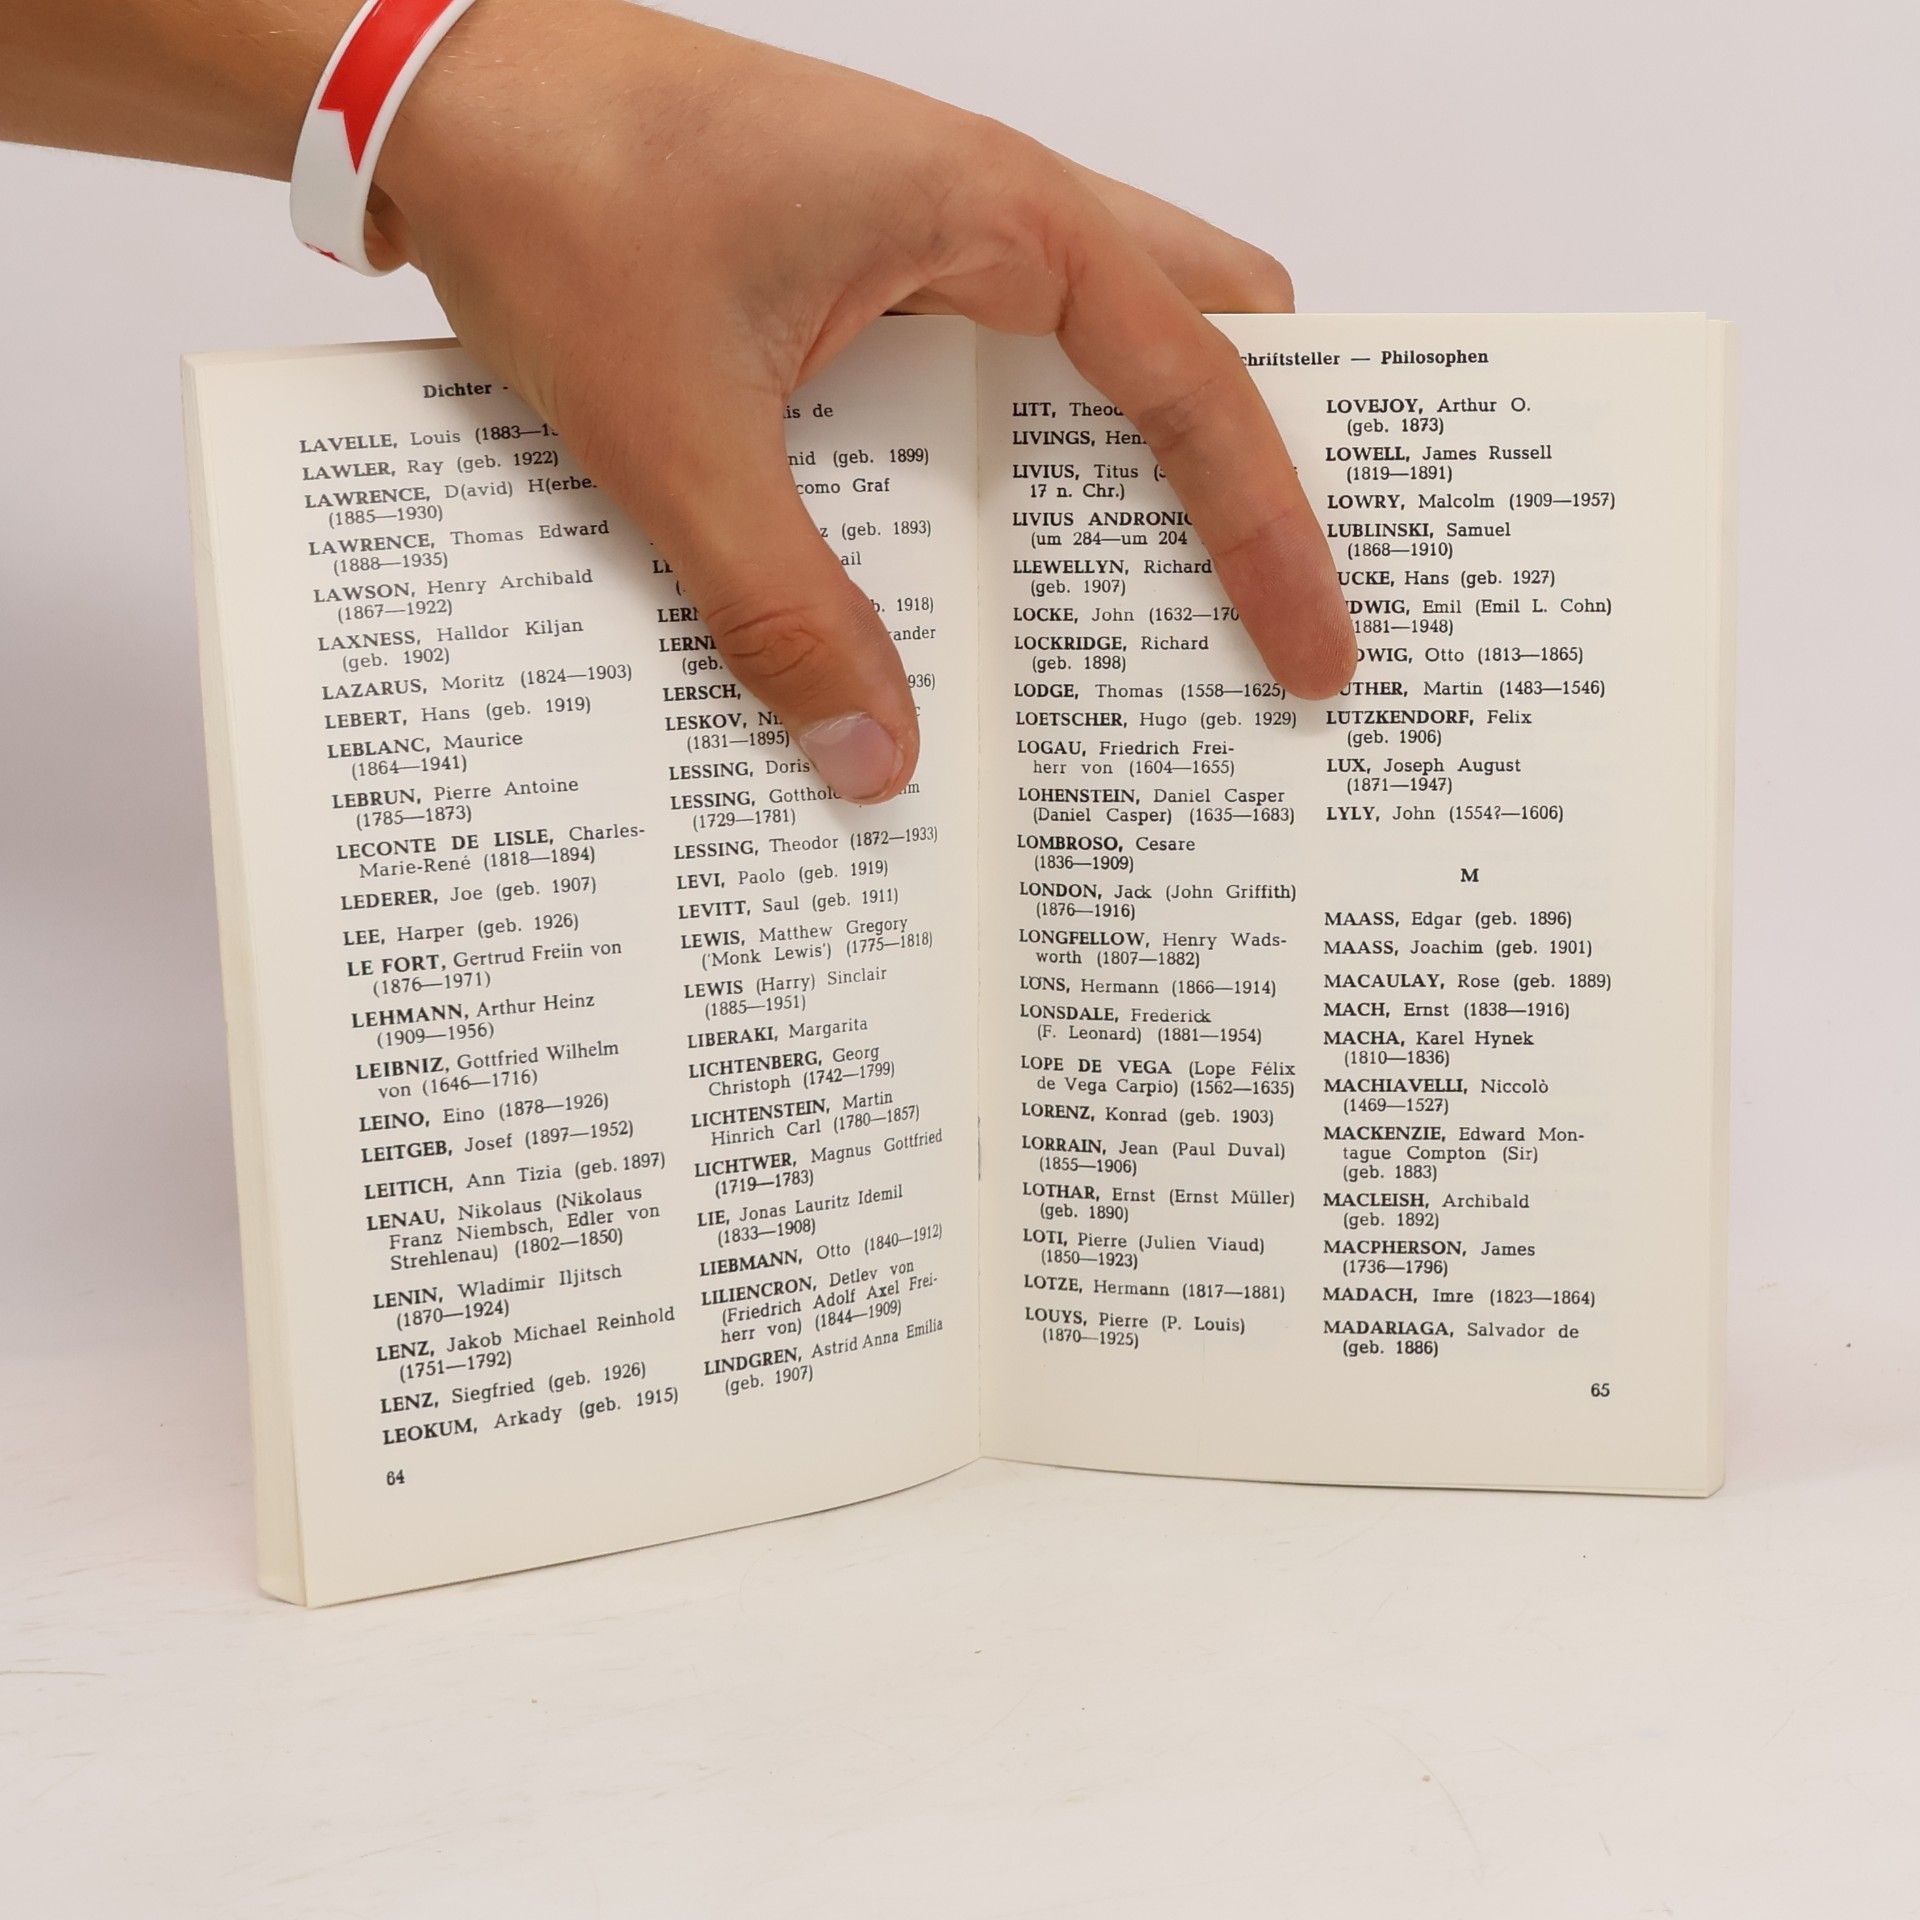 Dichter -
LAVELLE, Louis
LAWLER, Ray (geb. 1922)
LAWRENCE, D(avid)
(1885—1930)
LAWRENCE, Thomas Edward
(1888—1935)
LAWSON, Henry Archibald
(1867—1922)
LAXNESS, Halldor Kiljan
(geb. 1902)
LAZARUS, Moritz (1824—1903)
LEBERT, Hans (geb. 1919)
LEBLANC, Maurice
(1864—1941)
LEBRUN, Pierre Antoine
(1785—1873)
LECONTE DE LISLE, Charles-
Marie-René (1818—1894)
LEDERER, Joe (geb. 1907)
LEE, Harper (geb. 1926)
LE FORT, Gertrud Freiin von
(1876—1971)
LEHMANN, Arthur Heinz
(1909—1956)
LEIBNIZ, Gottfried Wilhelm
von (1646—1716)
LEINO, Eino (1878—1926)
LEITGEB, Josef (1897—1952)
LEITICH, Ann Tizia (geb. 1897)
LENAU, Nikolaus (Nikolaus
Franz Niembsch, Edler von
Strehlenau) (1802—1850)
LENIN, Wladimir Iljitsch
(1870—1924)
LENZ, Jakob Michael Reinhold
(1751—1792)
LENZ, Siegfried (geb. 1926)
LEOKUM, Arkady (geb. 1915)
64
de
(geb. 1899)
Graf
(geb. 1893)
1918)
(geb.
LERSCH,
LESKOV,
(1831—1895)
LESSING, Doris
LESSING,
(1729—1781)
LESSING, Theodor (1872—1933)
LEVI, Paolo (geb. 1919)
LEVITT, Saul (geb. 1911)
LEWIS, Matthew Gregory
('Monk Lewis') (1775—1818)
LEWIS (Harry) Sinclair
(1885—1951)
LIBERAKI, Margarita
LICHTENBERG, Georg
Christoph (1742—1799)
LICHTENSTEIN, Martin
Hinrich Carl (1780—1857)
LICHTWER, Magnus Gottfried
(1719—1783)
LIE, Jonas Lauritz Idemil
(1833—1908)
LIEBMANN, Otto (1840—1912)
LILIENCRON, Detlev von
(Friedrich Adolf Axel Frei-
herr von) (1844—1909)
LINDGREN, Astrid Anna Emilia
(geb. 1907)
chriftsteller — Philosophen
LITT,
LIVINGS,
LIVIUS, Titus
17 n. Chr.)
LIVIUS
(um 284—um 204
LLEWELLYN, Richard
(geb. 1907)
LOCKE, John
LOCKRIDGE, Richard
(geb. 1898)
LODGE, Thomas (1558—1625)
LOETSCHER, Hugo (geb. 1929)
LOGAU, Friedrich Frei-
herr von (1604—1655)
LOHENSTEIN, Daniel Casper
(Daniel Casper) (1635—1683)
LOMBROSO, Cesare
(1836—1909)
LONDON, Jack (John Griffith)
(1876—1916)
LONGFELLOW, Henry Wads-
worth (1807—1882)
LÖNS, Hermann (1866—1914)
LONSDALE, Frederick
(F. Leonard) (1881—1954)
LOPE DE VEGA (Lope Félix
de Vega Carpio) (1562—1635)
LORENZ, Konrad (geb. 1903)
LORRAIN, Jean (Paul Duval)
(1855—1906)
LOTHAR, Ernst (Ernst Müller)
(geb. 1890)
LOTI, Pierre (Julien Viaud)
(1850—1923)
LOTZE, Hermann (1817—1881)
LOUYS, Pierre (P. Louis)
(1870—1925)
LOVEJOY, Arthur O.
(geb. 1873)
LOWELL, James Russell
(1819—1891)
LOWRY, Malcolm (1909—1957)
LUBLINSKI, Samuel
(1868—1910)
UCKE, Hans (geb. 1927)
DWIG, Emil (Emil L. Cohn)
1881—1948)
DWIG, Otto (1813—1865)
UTHER, Martin (1483—1546)
LÜTZKENDORF, Felix
(geb. 1906)
LUX, Joseph August
(1871—1947)
LYLY, John (1554?—1606)
M
MAASS, Edgar (geb. 1896)
MAASS, Joachim (geb. 1901)
MACAULAY, Rose (geb. 1889)
MACH, Ernst (1838—1916)
MACHA, Karel Hynek
(1810—1836)
MACHIAVELLI, Niccolò
(1469—1527)
MACKENZIE, Edward Mon-
tague Compton (Sir)
(geb. 1883)
MACLEISH, Archibald
(geb. 1892)
MACPHERSON, James
(1736—1796)
MADACH, Imre (1823—1864)
MADARIAGA, Salvador de
(geb. 1886)
65